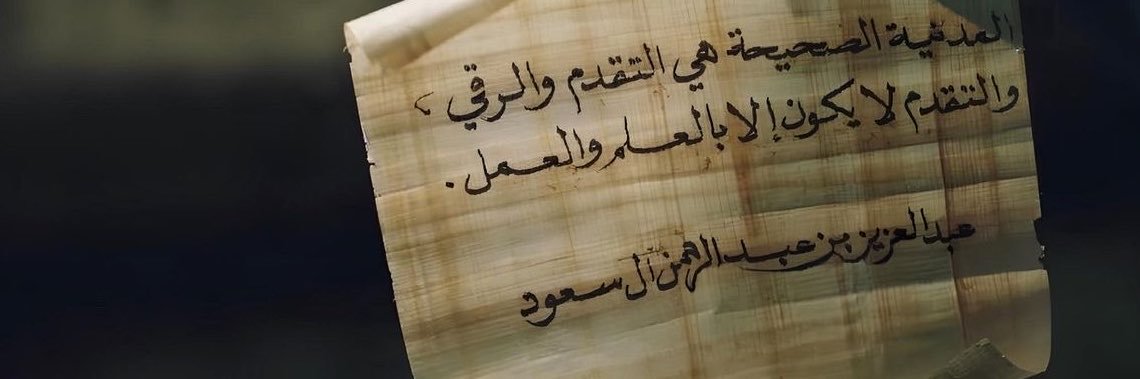 المدنية الصحيحة هي التقدم والرقي،
والتقدم لا يكون إلا بالعلم والعمل.
عبدالعزيز بن عبدالرحمن آل سعود